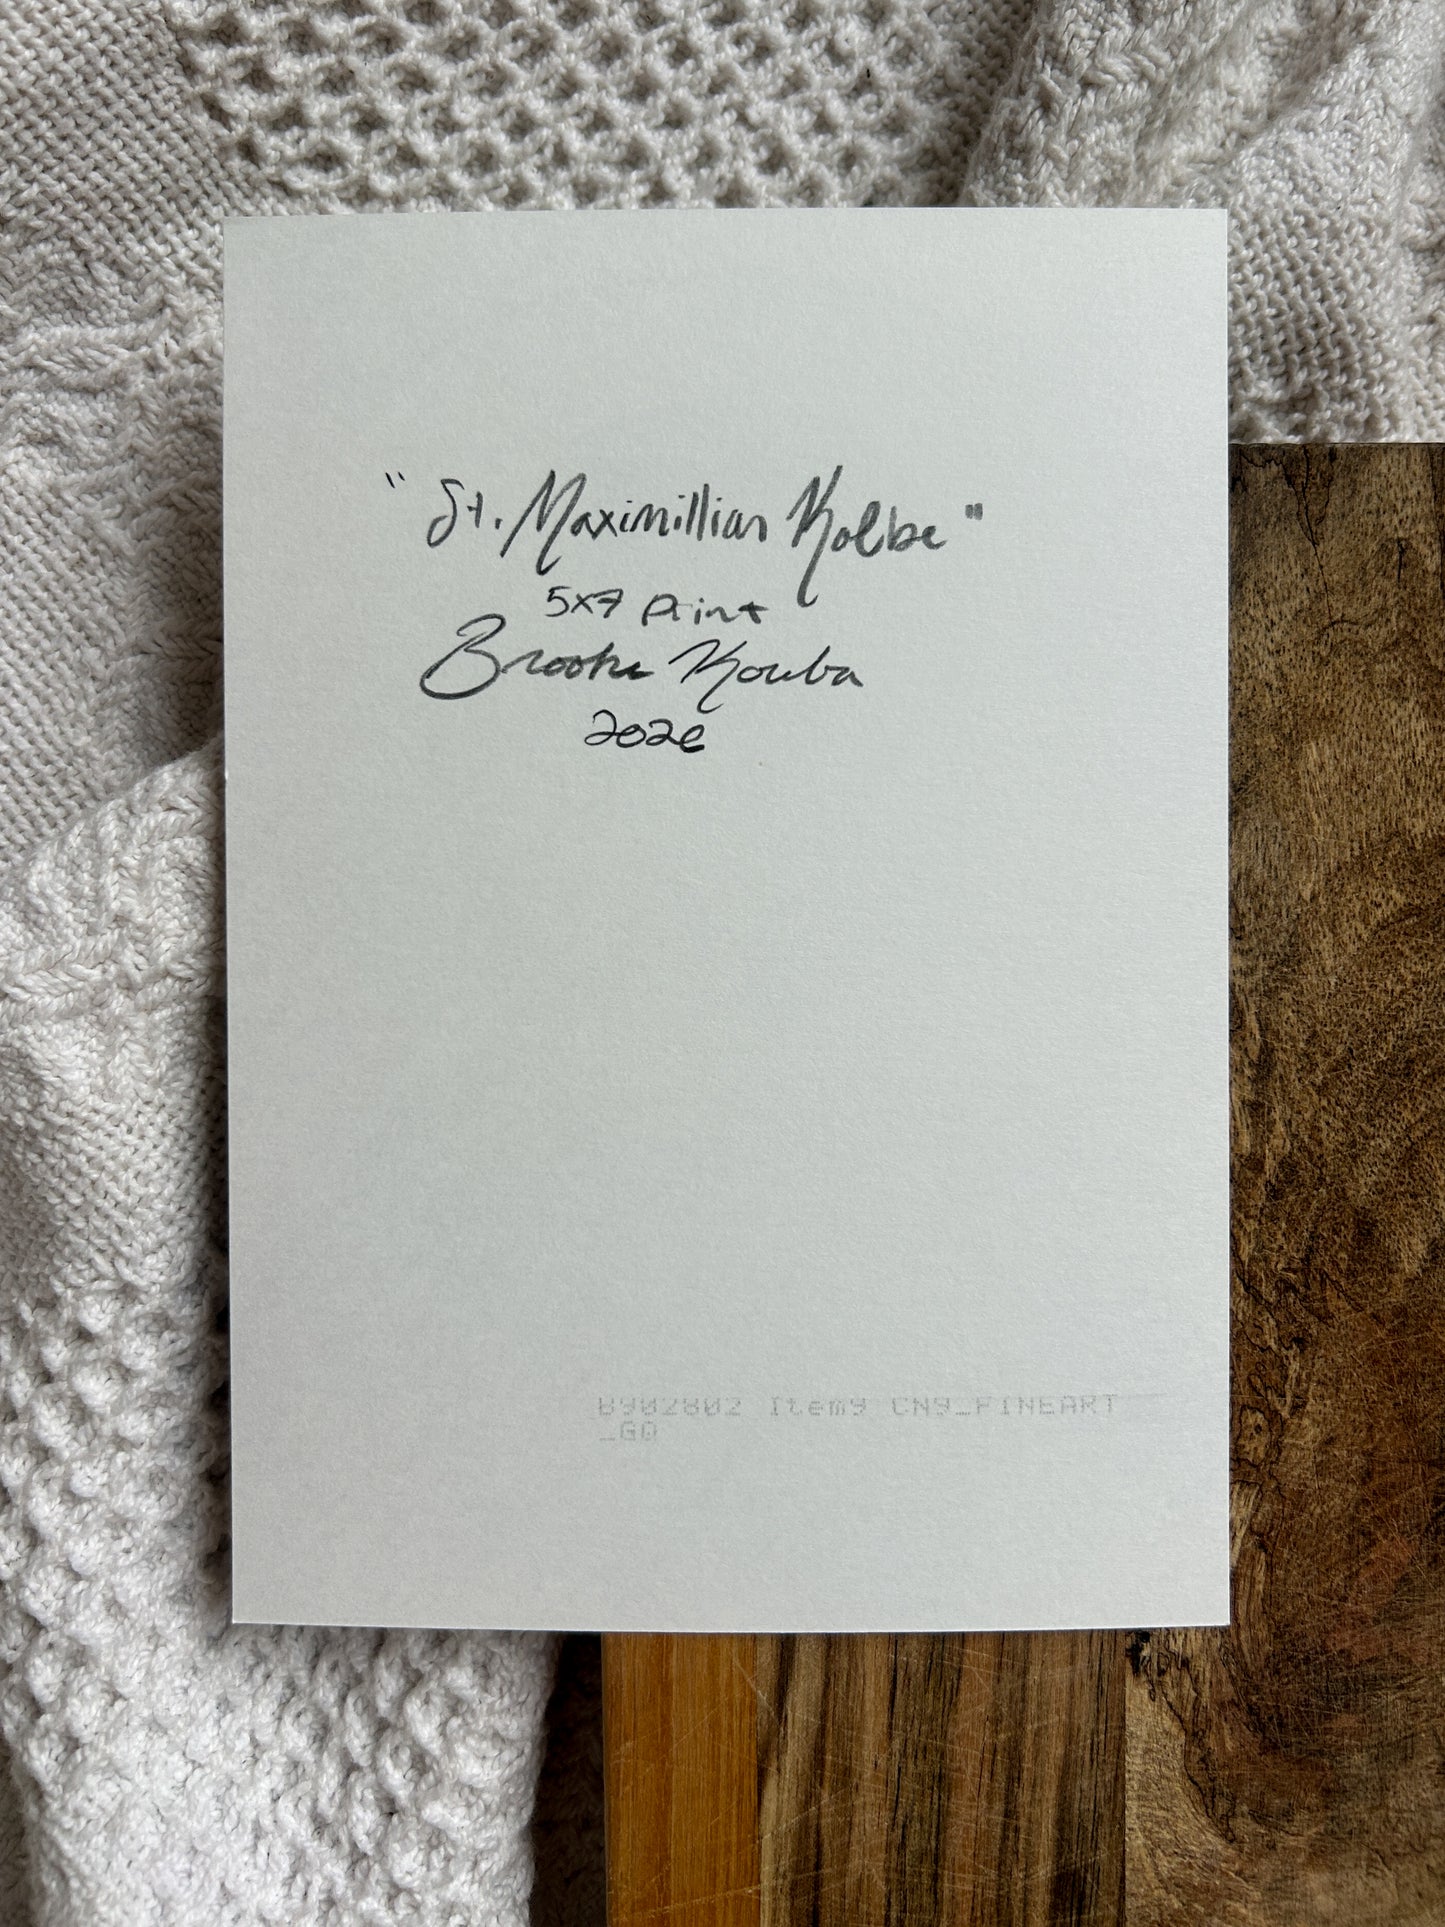 "St. Maximillian Kolbe"
5x7 print
Brooke Kouba
2020
8902802 Item9 CN9_FINEART
_G0